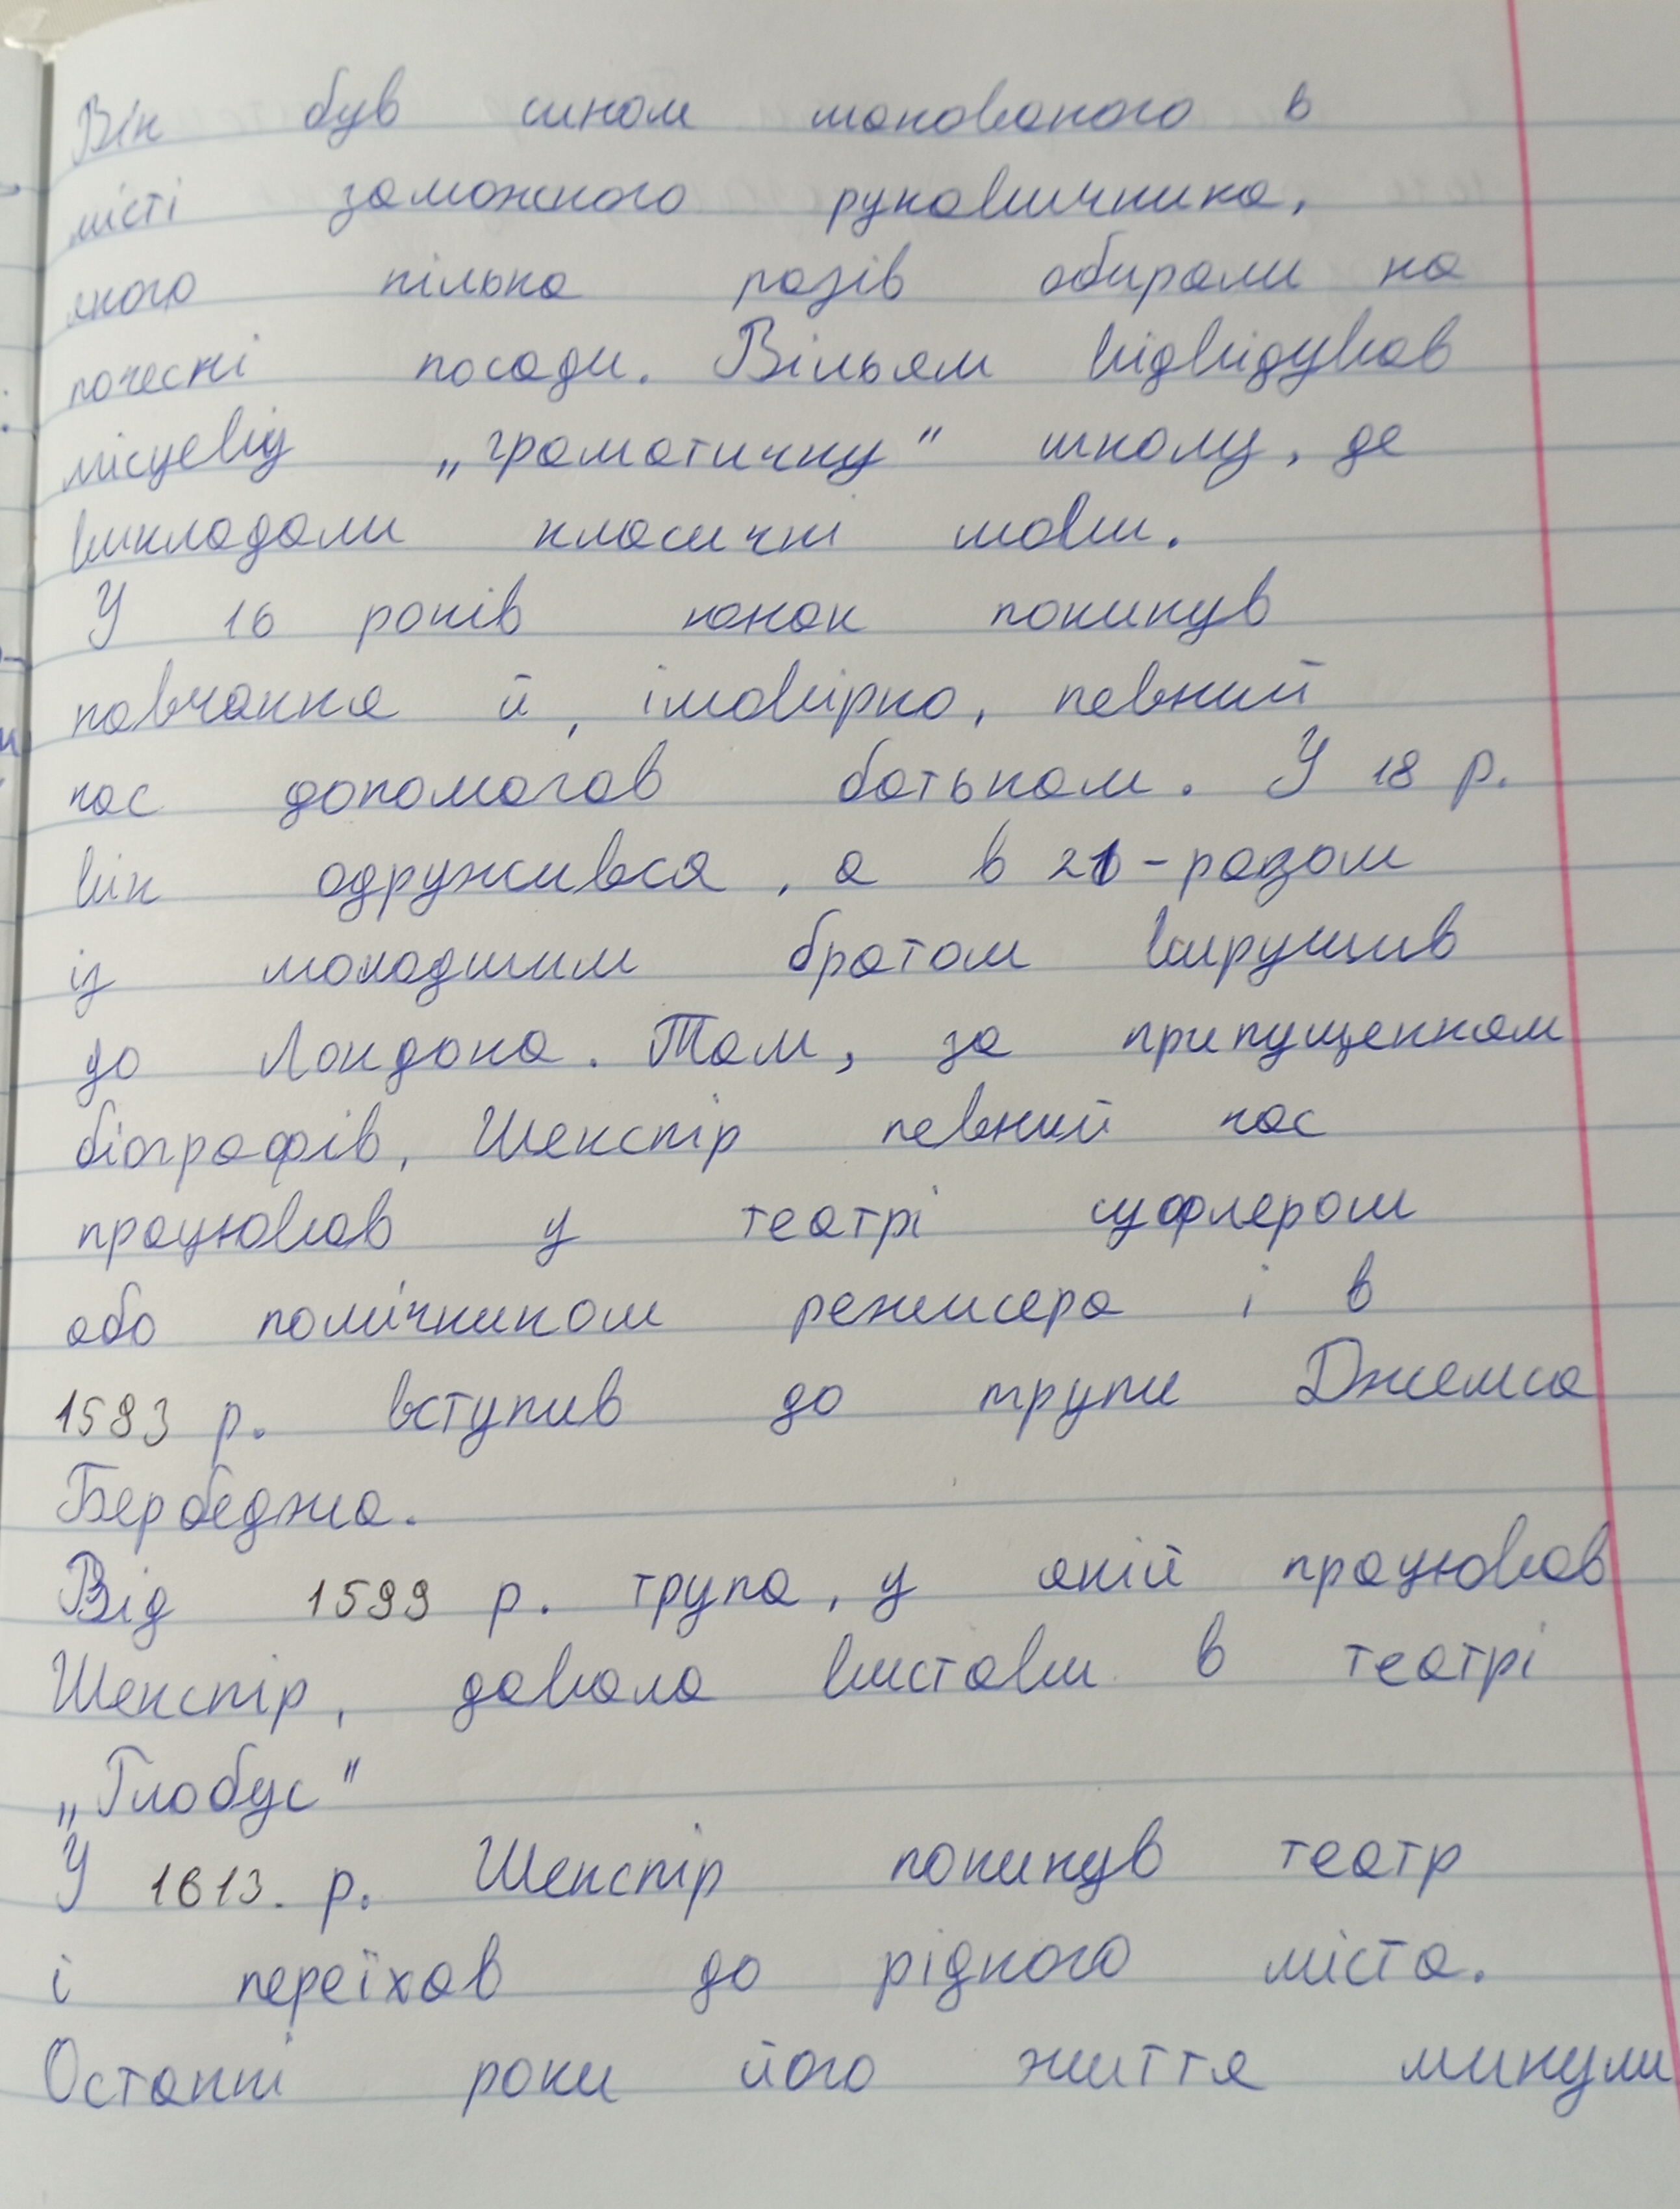 Він був сином шанованого в
місті заможного рукавичника,
якого кілька разів обирали на
почесні посади. Вільям відвідував
місцеву „граматичну" школу, де
викладали класичні мови.
У 16 років юнак покинув
навчання й, імовірно, певний
час допомагав батькам. У 18 р.
він одружився, а в 21-разом
із молодшим братом вирушив
до Лондона. Там, за припущенням
біографів, Шекспір певний час
працював у театрі суфлером
або помічником режисера і в
1593 р. вступив до трупи Джемса
Бербеджа.
Від 1599 р. трупа, у якій працював
Шекспір, давала вистави в театрі
„Глобус"
У 1613. р. Шекспір покинув театр
і переїхав до рідного міста.
Останні роки його життя минули